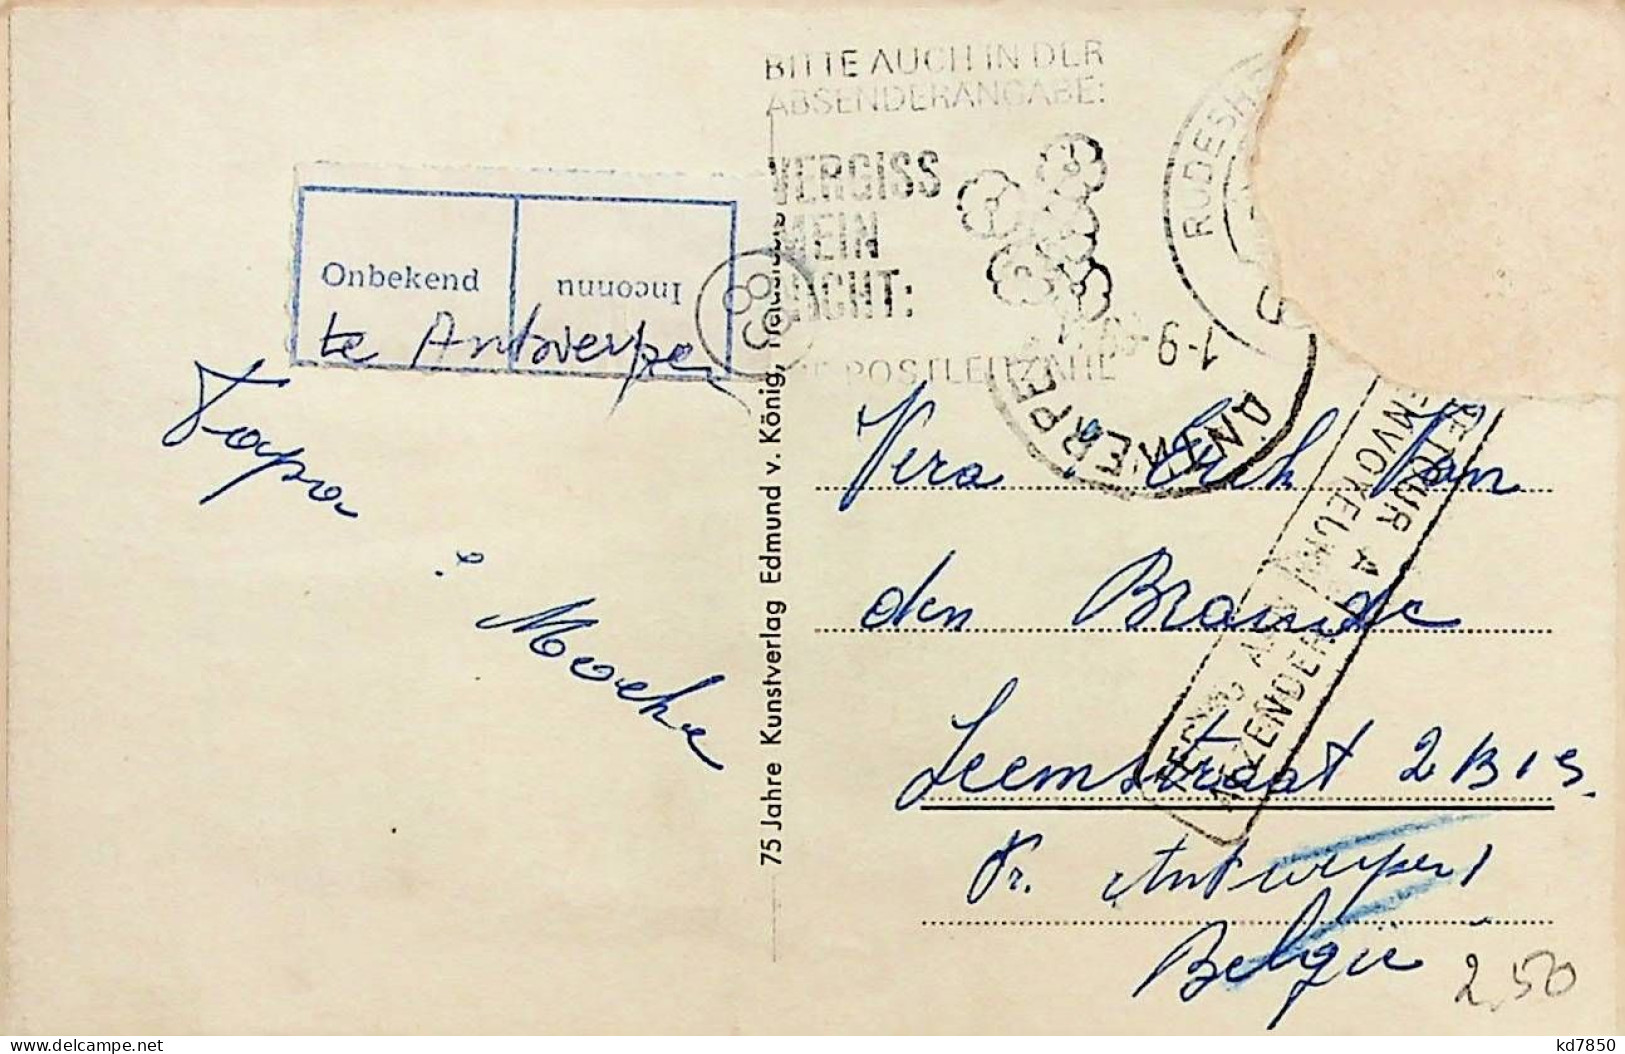 BITTE AUCH IN DER
ABSENDERANGABE:
VERGISS
MEIN
NICHT:
POSTLEITZAHL
RUDESH
1-9
ANTWERPE
Onbekend
Inconnu
te Antwerpen
68
Papa
Moeke
75 Jahre Kunstverlag Edmund v. König,
Vera Erik Van
den Brande
Leemstraat 2 BIS.
Pr. Antwerpen
België
RETOUR A
ENVOYEUR
TERUG AAN
AFZENDER
2,50
delcampe.net
kd7850